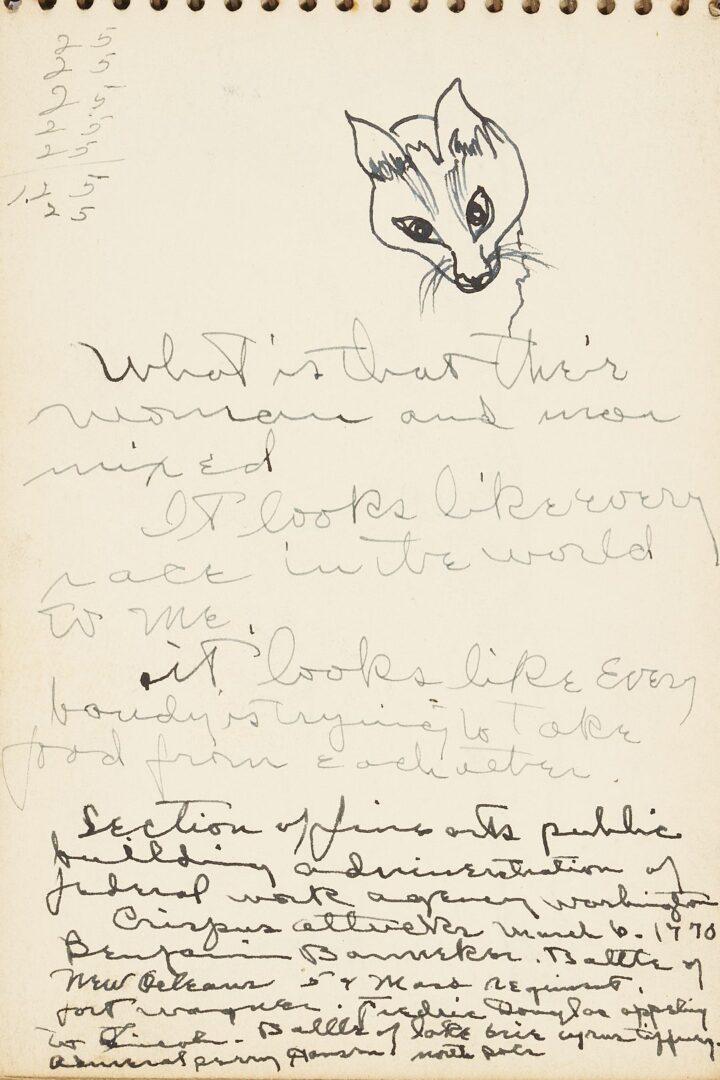 25
25
25
25
25
1.25
25
What is that their
woman and man
mixed
It looks like every
race in the world
to me.
it looks like Every
boudy is trying to Take
food from each other.
Section of fine arts public
building administration of
federal work agency washington
Crispus attucks March 6. 1770
Benjamin Banneker. Battle of
New Orleans 54 Mass regiment.
fort wagner. Fredric Douglas appeling
to Lincoln. Battle of lake erie cyrus tiffany.
admiral perry Henson north pole